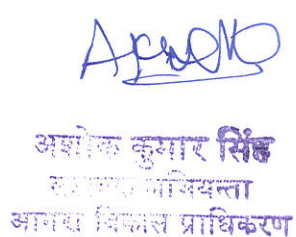 अशोक कुमार सिंह
अभियन्ता
आगरा विकास प्राधिकरण